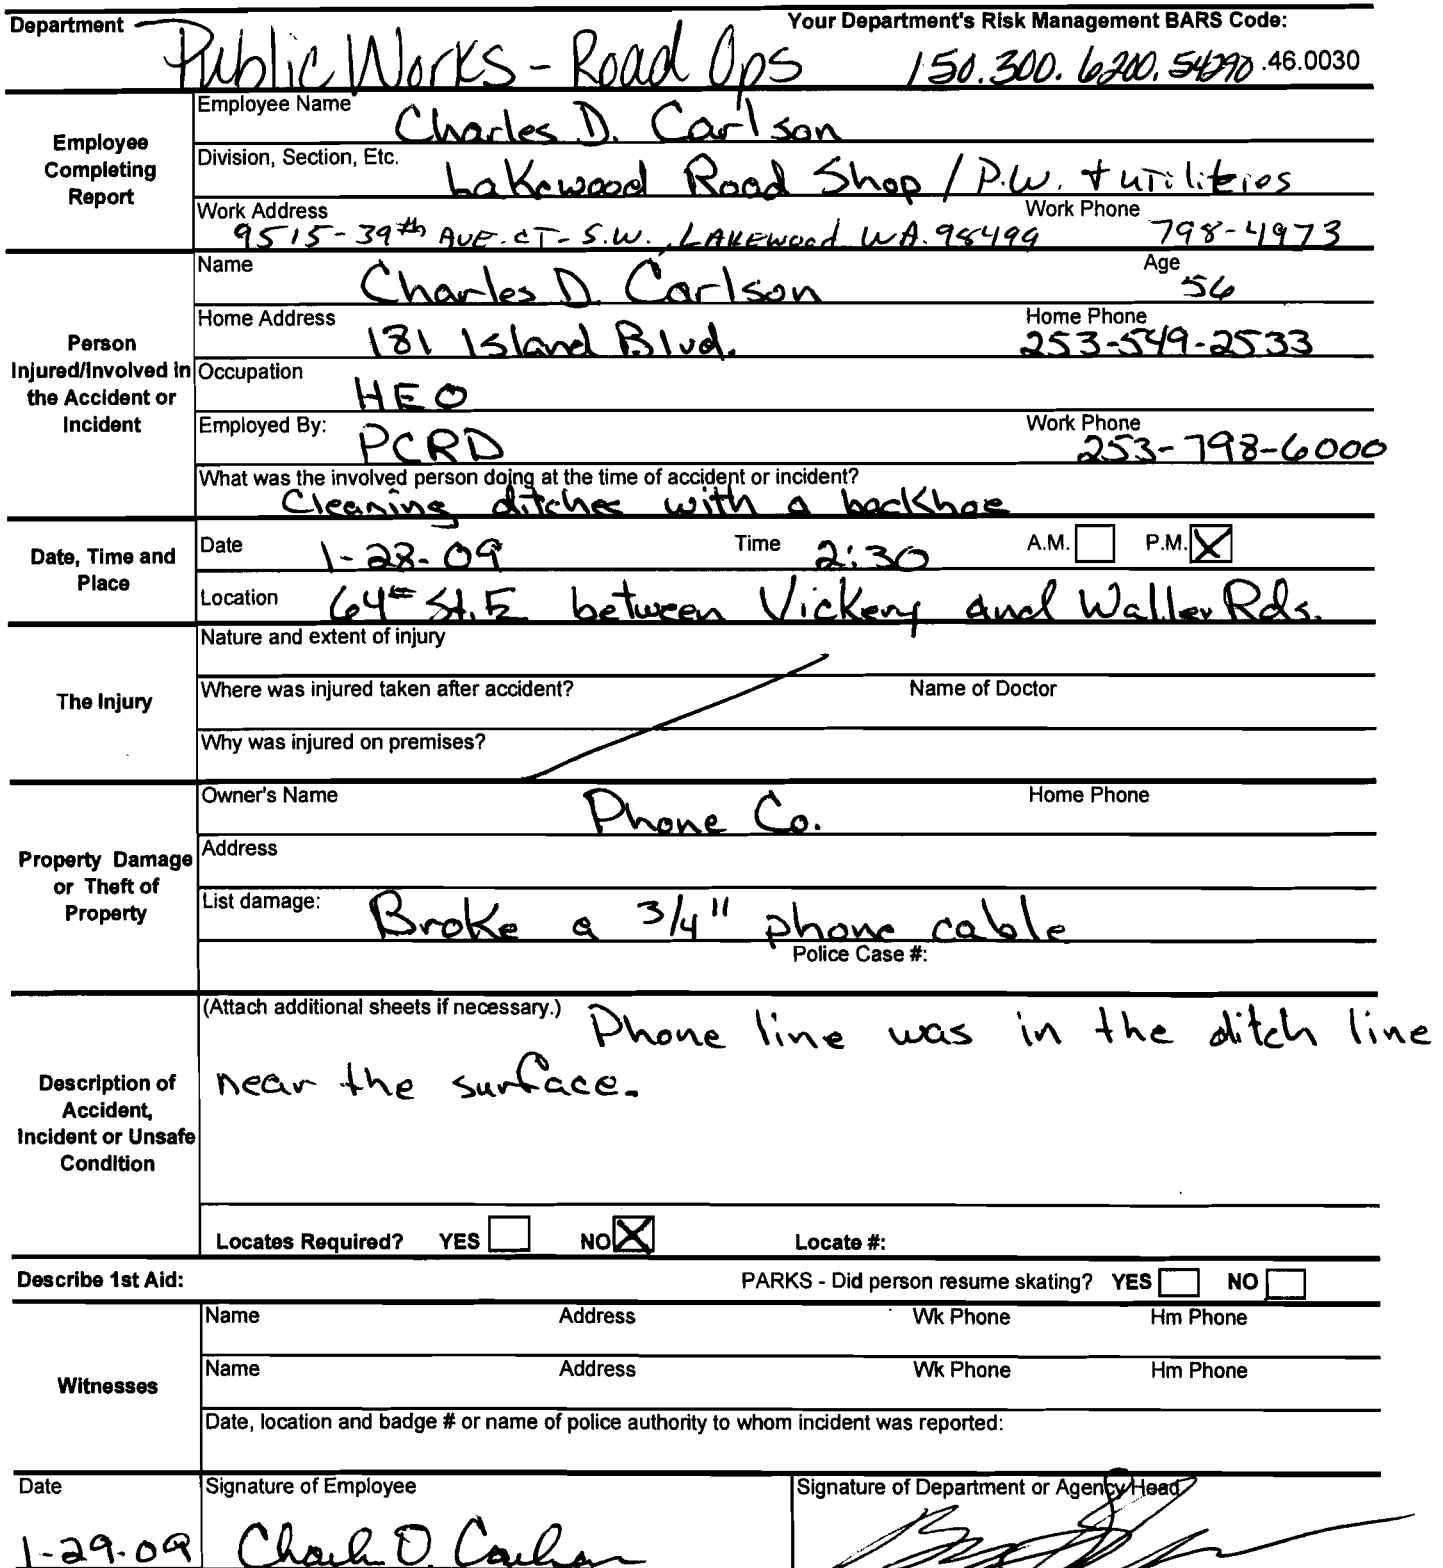 Department Your Department's Risk Management BARS Code:
Public Works - Road Ops 150.300.6200.54290.46.0030
Employee Completing Report
Employee Name Charles D. Carlson
Division, Section, Etc. Lakewood Road Shop / P.W. + utilities
Work Address Work Phone
9515-39th AVE. CT- S.W., LAKEWOOD WA. 98499 798-4973
Person Injured/Involved in the Accident or Incident
Name Charles D. Carlson Age 56
Home Address 181 Island Blvd. Home Phone 253-549-2533
Occupation HEO
Employed By: PCRD Work Phone 253-798-6000
What was the involved person doing at the time of accident or incident?
Cleaning ditches with a backhoe
Date, Time and Place
Date 1-28-09 Time 2:30 A.M. P.M. X
Location 64th St. E between Vickery and Waller Rds.
The Injury
Nature and extent of injury
Where was injured taken after accident? Name of Doctor
Why was injured on premises?
Property Damage or Theft of Property
Owner's Name Phone Co. Home Phone
Address
List damage: Broke a 3/4" phone cable
Police Case #:
Description of Accident, Incident or Unsafe Condition
(Attach additional sheets if necessary.) Phone line was in the ditch line
near the surface.
Locates Required? YES NO X Locate #:
Describe 1st Aid: PARKS - Did person resume skating? YES NO
Witnesses
Name Address Wk Phone Hm Phone
Name Address Wk Phone Hm Phone
Date, location and badge # or name of police authority to whom incident was reported:
Date Signature of Employee Signature of Department or Agency Head
1-29-09 Charles D. Carlson